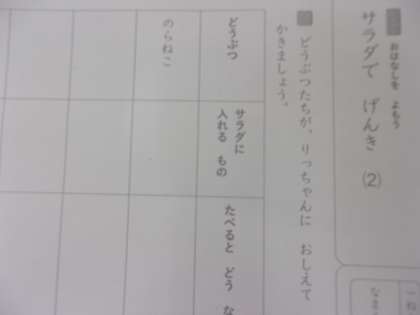 おはなしを よもう
サラダで げんき (2)
どうぶつたちが、りっちゃんに おしえて
かきましょう。
どうぶつ
サラダに
入れる もの
たべると どう
のらねこ